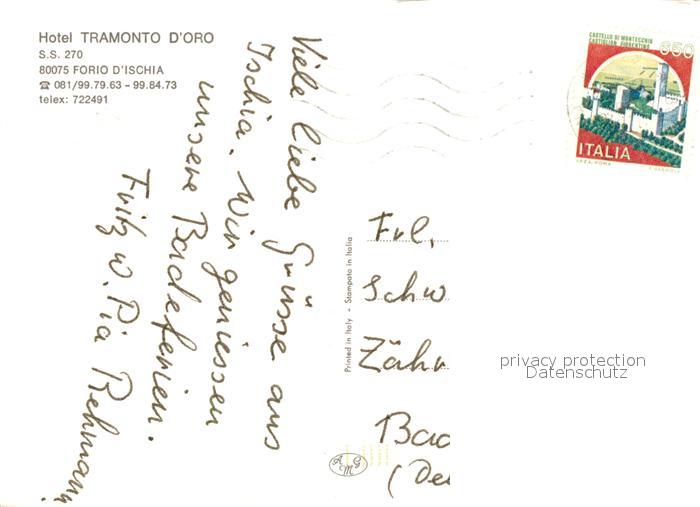 Hotel TRAMONTO D'ORO
S.S. 270
80075 FORIO D'ISCHIA
☎ 081/99.79.63 - 99.84.73
telex: 722491
Viele liebe Grüsse aus
Ischia. Wir geniessen
unsere Badeferien.
Fritz u. Pia Rehmann
Printed in Italy - Stampato in Italia
CASTELLO DI MONTECCHIO
CASTIGLION FIORENTINO
650
ITALIA
I.P.Z.S. ROMA
Frl.
Schw
Zähr
Bad
(De
AMG
privacy protection
Datenschutz